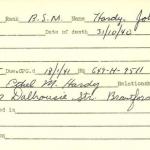 Rank R.S.M. Name Hardy, Joh
Date of death 31/10/40
Dec. C.P.C. d 18/1/41 649-H-9511
Ethel M. Hardy Relations
Dalhousie Str. Brantford